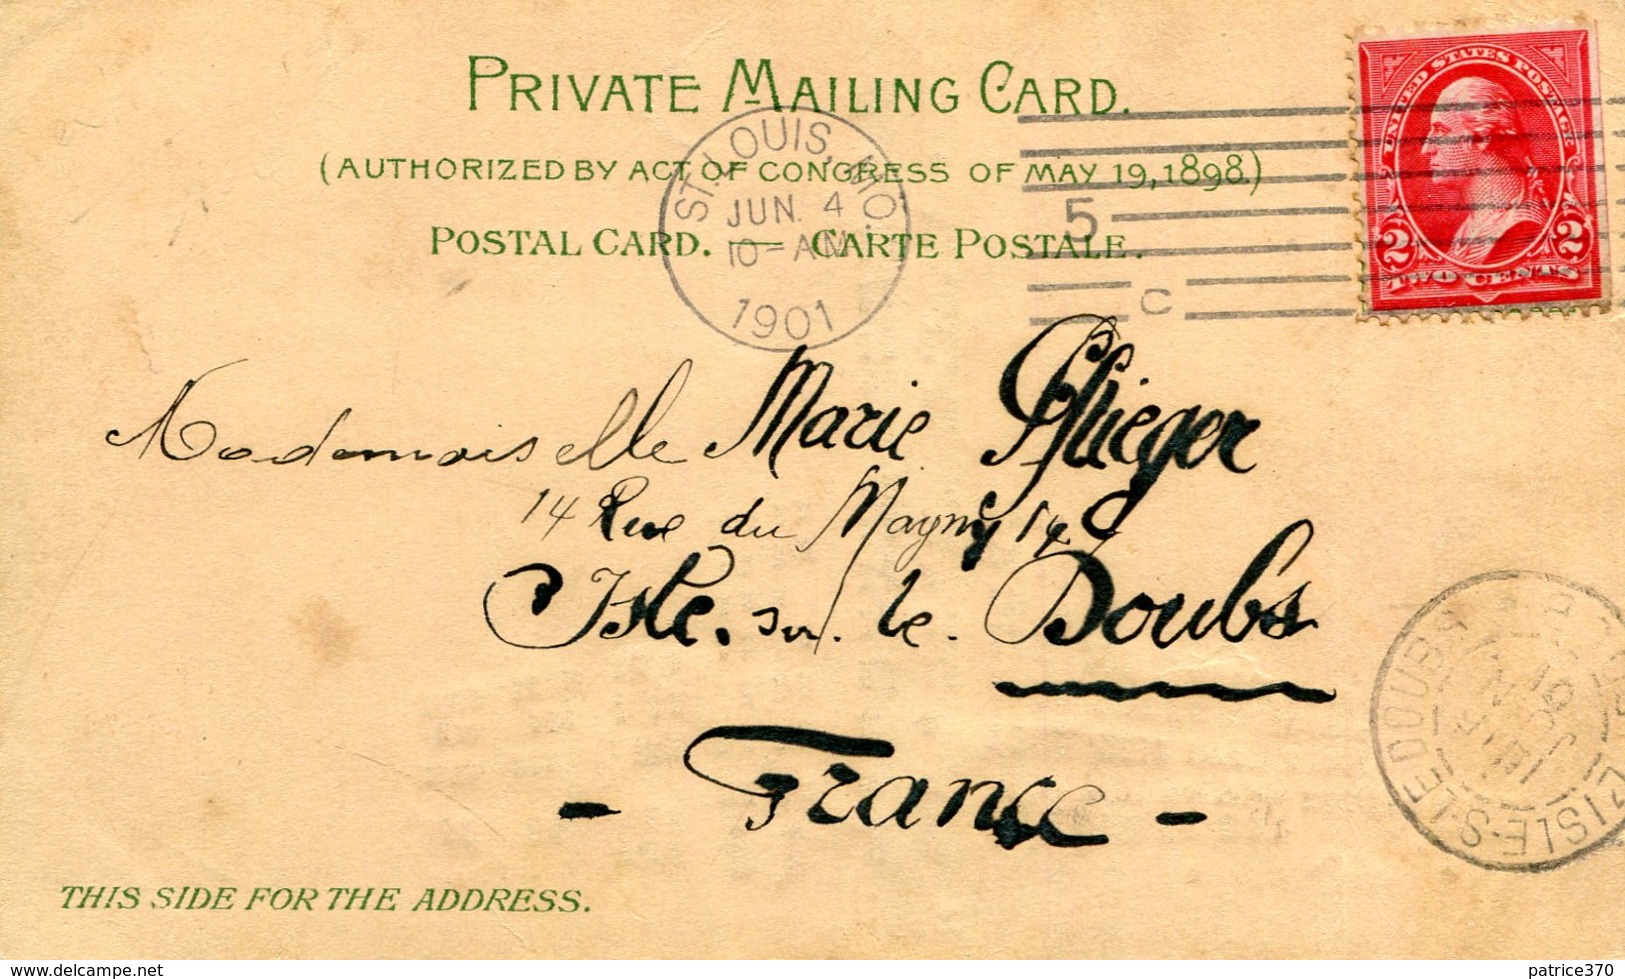 PRIVATE MAILING CARD.
(AUTHORIZED BY ACT OF CONGRESS OF MAY 19, 1898.)
POSTAL CARD. — CARTE POSTALE.
ST. LOUIS, MO.
JUN. 4
10 - AM
1901
5
C
UNITED STATES POSTAGE
2 2
TWO CENTS
Mademoiselle Marie Pflieger
14 Rue du Magny 14
Isle. sur. le. Doubs
- France -
ISLE-S-LE DOUBS
THIS SIDE FOR THE ADDRESS.
www.delcampe.net
patrice370